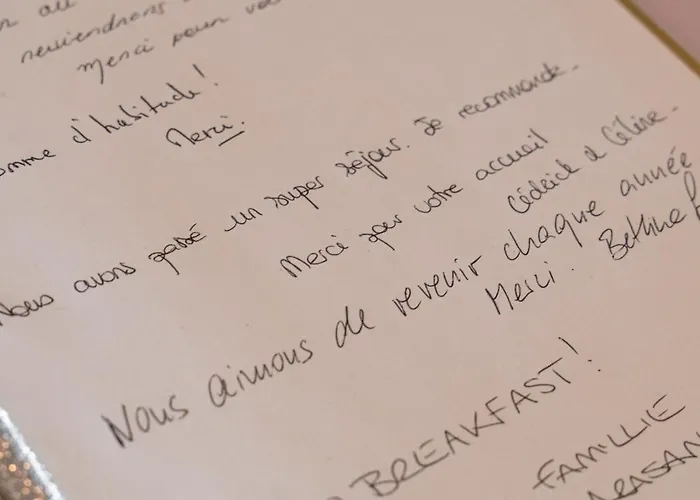 au
reviendrons
Merci pour
d'habitude !
Merci.
Nous avons passé un super séjour. Je recommande.
Merci pour votre accueil
Cédrick & Céline.
Nous aimons de revenir chaque année
Merci. Bettina
BREAKFAST!
FAMILIE